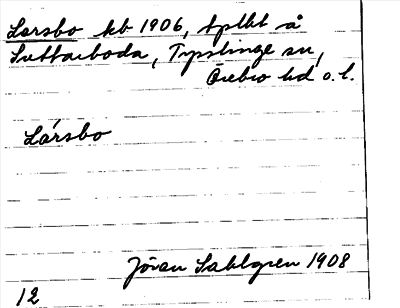 Larsbo kb 1906, tplkt å
Suttarboda, Tysslinge sn,
Örebro hd o. l.
Lársbo
Jöran Sahlgren 1908
12